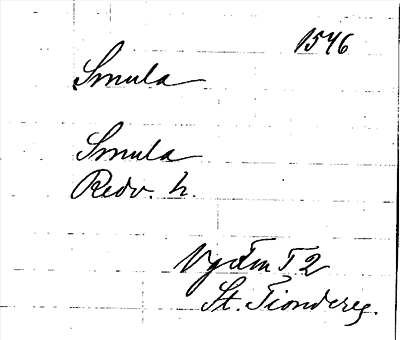 1546
Smula
Smula
Redv. h.
Vg Fm T. 2
St. Tiondereg.